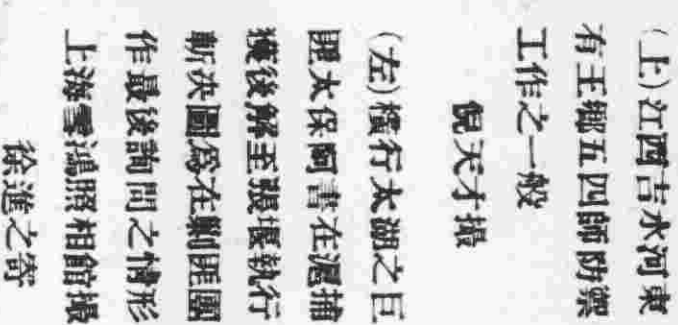 (上)江西吉水河東
有王鄉五四師防禦
工作之一般
倪天才攝
(左)橫行太湖之巨
匪太保阿書在滬捕
獲後解至張堰執行
斬決圖爲在剿匪團
作最後詢問之情形
上海雪鴻照相館攝
徐進之寄